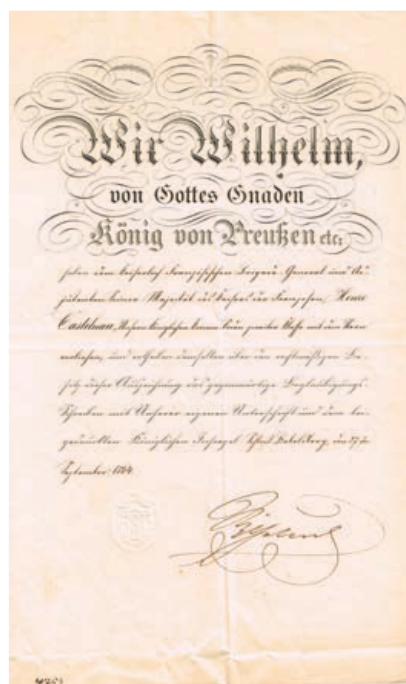 Wir Wilhelm,
von Gottes Gnaden
König von Preußen etc.
haben dem Kaiserlich Französischen Brigade-General und Ad-
jutanten Seiner Majestät des Kaisers der Franzosen, Henri
Castelnau, Unseren Königlichen Kronen-Orden zweiter Klasse mit dem Stern
verliehen, und ertheilen demselben über den rechtmäßigen Be-
sitz dieser Auszeichnung das gegenwärtige Beglaubigungs-
Schreiben mit Unserer eigenen Unterschrift und dem bei-
gedruckten Königlichen Insiegel. Schloß Babelsberg, den
September 1864.
Wilhelm